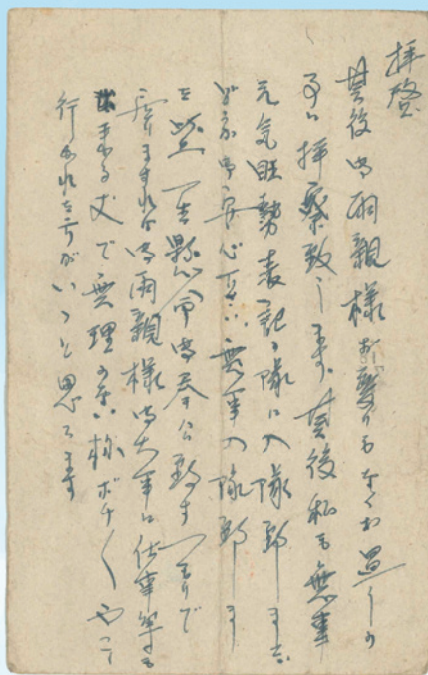 拝啓
其後御両親様お変りもなくお過しの
事と拝察致します。其後私も無事
元気旺勢表記の隊に入隊致しますた
どうか御安心下さい 無事入隊致しま
した以上一生懸命御奉公致すつもりで
居りますれば御両親様御大事に仕事等も
出来る丈で無理のない様ボチ〱やって
行かれた方がいゝと思ひます